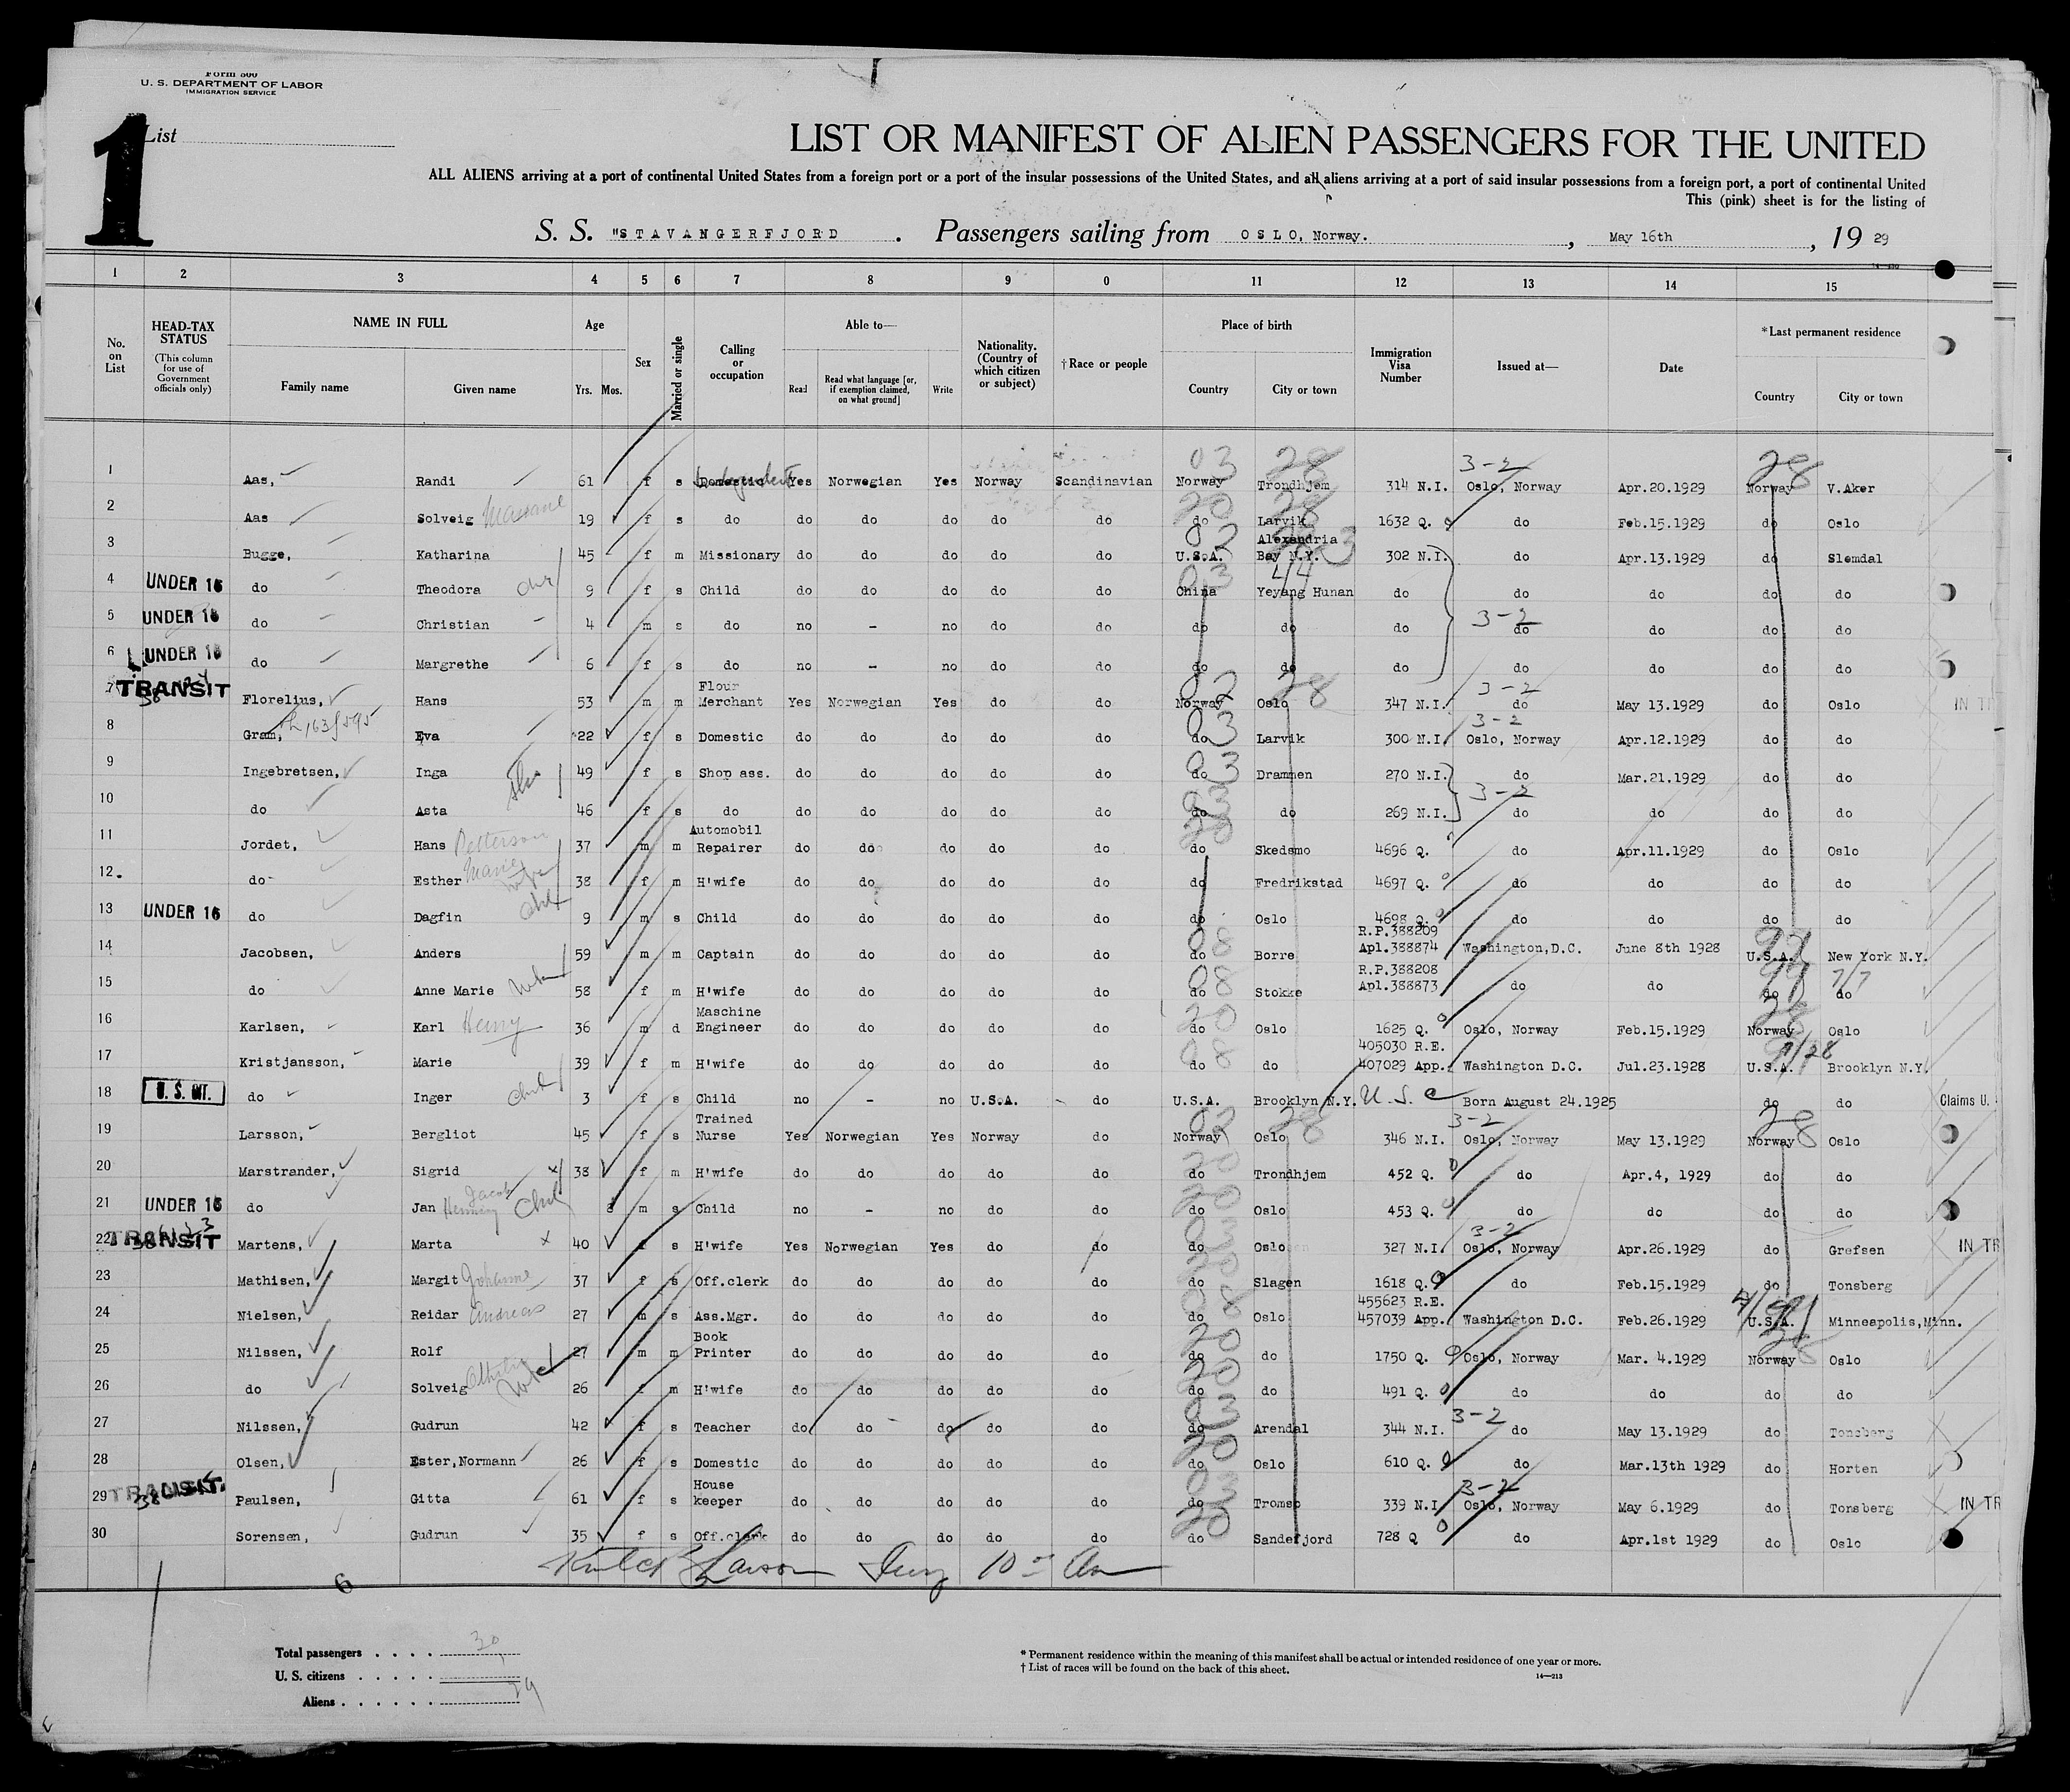 Form 500
U. S. DEPARTMENT OF LABOR
IMMIGRATION SERVICE
1
List
LIST OR MANIFEST OF ALIEN PASSENGERS FOR THE UNITED
ALL ALIENS arriving at a port of continental United States from a foreign port or a port of the insular possessions of the United States, and all aliens arriving at a port of said insular possessions from a foreign port, a port of continental United
This (pink) sheet is for the listing of
S. S. "STAVANGERFJORD . Passengers sailing from OSLO, Norway. , May 16th , 19 29
1 2 3 4 5 6 7 8 9 0 11 12 13 14 15
No. on List
HEAD-TAX STATUS
(This column for use of Government officials only)
NAME IN FULL
Family name Given name
Age
Yrs. Mos.
Sex
Married or single
Calling or occupation
Able to—
Read Read what language [or, if exemption claimed, on what ground] Write
Nationality. (Country of which citizen or subject)
†Race or people
Place of birth
Country City or town
Immigration Visa Number
Issued at—
Date
*Last permanent residence
Country City or town
1 Aas, Randi 61 f s Domestic Yes Norwegian Yes Norway Scandinavian Norway Trondhjem 314 N.I. 3-2 Oslo, Norway Apr.20.1929 Norway V.Aker
2 Aas Solveig 19 f s do do do do do do do Larvik 1632 Q. do Feb.15.1929 do Oslo
3 Bugge, Katharina 45 f m Missionary do do do do do U.S.A. Alexandria Bay N.Y. 302 N.I. do Apr.13.1929 do Slemdal
4 UNDER 16 do Theodora 9 f s Child do do do do do China Yeyang Hunan do do do do do
5 UNDER 16 do Christian 4 m s do no - no do do do do do 3-2 do do do do
6 UNDER 16 do Margrethe 6 f s do no - no do do do do do do do do do
7 TRANSIT Florelius, Hans 53 m m Flour Merchant Yes Norwegian Yes do do Norway Oslo 347 N.I. 3-2 do May 13.1929 do Oslo
8 Gram, Eva 22 f s Domestic do do do do do do Larvik 300 N.I. 3-2 Oslo, Norway Apr.12.1929 do do
9 Ingebretsen, Inga 49 f s Shop ass. do do do do do do Drammen 270 N.I. do Mar.21.1929 do do
10 do Asta 46 f s do do do do do do do do 269 N.I. 3-2 do do do do
11 Jordet, Hans Petterson 37 m m Automobil Repairer do do do do do do Skedsmo 4696 Q. do Apr.11.1929 do Oslo
12. do Esther Marie 38 f m H'wife do do do do do do Fredrikstad 4697 Q. do do do do
13 UNDER 16 do Dagfin 9 m s Child do do do do do do Oslo 4698 Q. do do do do
14 Jacobsen, Anders 59 m m Captain do do do do do do Borre R.P.388209 Apl.388874 Washington,D.C. June 8th 1928 U.S.A. New York N.Y.
15 do Anne Marie 58 f m H'wife do do do do do do Stokke R.P.388208 Apl.388873 do do do do
16 Karlsen, Karl Henry 36 m d Maschine Engineer do do do do do do Oslo 1625 Q. Oslo, Norway Feb.15.1929 Norway Oslo
17 Kristjansson, Marie 39 f m H'wife do do do do do do do 405030 R.E. 407029 App. Washington D.C. Jul.23.1928 U.S.A. Brooklyn N.Y.
18 U. S. CIT. do Inger 3 f s Child no - no U.S.A. do U.S.A. Brooklyn N.Y. U.S.C Born August 24.1925 do do Claims U.
19 Larsson, Bergliot 45 f s Trained Nurse Yes Norwegian Yes Norway do Norway Oslo 346 N.I. 3-2 Oslo, Norway May 13.1929 Norway Oslo
20 Marstrander, Sigrid 38 f m H'wife do do do do do do Trondhjem 452 Q. do Apr.4, 1929 do do
21 UNDER 16 do Jan Henning Jacob 8 m s Child no - no do do do Oslo 453 Q. do do do do
22 TRANSIT Martens, Marta 40 f s H'wife Yes Norwegian Yes do do do Oslo 327 N.I. 3-2 Oslo, Norway Apr.26.1929 do Grefsen IN TR
23 Mathisen, Margit Johanne 37 f s Off.clerk do do do do do do Slagen 1618 Q. do Feb.15.1929 do Tonsberg
24 Nielsen, Reidar Andreas 27 m s Ass.Mgr. do do do do do do Oslo 455623 R.E. 457039 App. Washington D.C. Feb.26.1929 U.S.A. Minneapolis,Minn.
25 Nilssen, Rolf 27 m m Book Printer do do do do do do do 1750 Q. Oslo, Norway Mar. 4.1929 Norway Oslo
26 do Solveig 26 f m H'wife do do do do do do do 491 Q. do do do do
27 Nilssen, Gudrun 42 f s Teacher do do do do do do Arendal 344 N.I. 3-2 do May 13.1929 do Tonsberg
28 Olsen, Ester,Normann 26 f s Domestic do do do do do do Oslo 610 Q. do Mar.13th 1929 do Horten
29 TRANSIT Paulsen, Gitta 61 f s House keeper do do do do do do Tromso 339 N.I 3-2 Oslo, Norway May 6.1929 do Tonsberg IN TR
30 Sorensen, Gudrun 35 f s Off.clerk do do do do do do Sandefjord 728 Q do Apr.1st 1929 do Oslo
6
Total passengers . . . . 30
U. S. citizens . . . . .
Aliens . . . . . . 29
* Permanent residence within the meaning of this manifest shall be actual or intended residence of one year or more.
† List of races will be found on the back of this sheet.
14—213